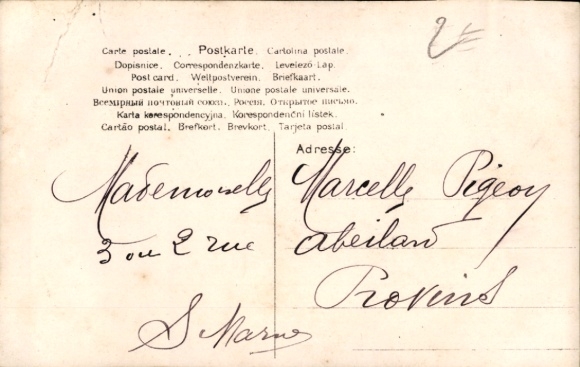 Carte postale. . . Postkarte. Cartolina postale.
Dopisnice. Correspondenzkarte. Levelező-Lap.
Post card. Weltpostverein. Briefkaart.
Union postale universelle. Unione postale universale.
Всемирный почтовый союзъ. Россія. Открытое письмо.
Karta korespondencyjna. Korespondenční lístek.
Cartão postal. Brefkort. Brevkort. Tarjeta postal.
Adresse:
Mademoiselle Marcelle Pigeoy
3 ou 2 rue Abeilard
Provins
S Marne